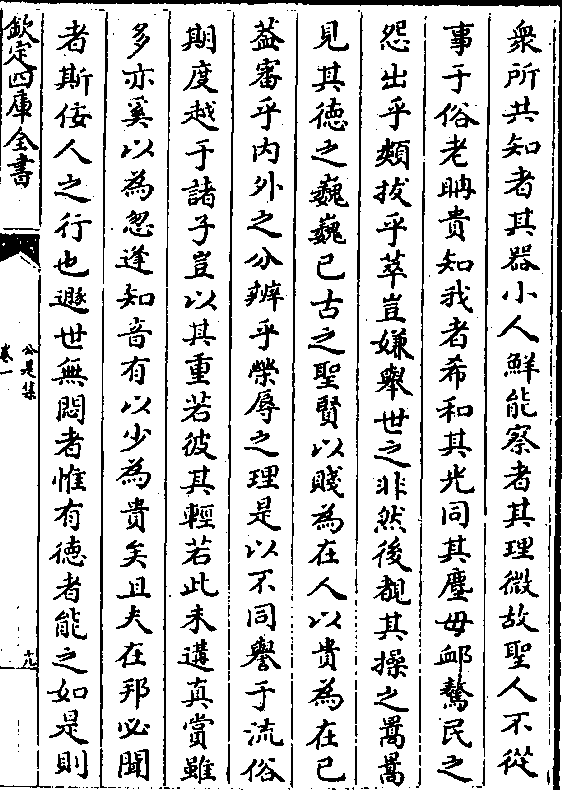 衆所共知者其器小人鮮能察者其理微故聖人不從
事于俗老聃貴知我者希和其光同其塵毋卹驁民之
怨出乎類拔乎萃豈嫌舉世之非然後覩其操之暠暠
見其徳之巍巍已古之聖賢以賤為在人以貴為在已
葢審乎内外之分辨乎榮辱之理是以不同譽于流俗
期度越于諸子豈以其重若彼其輕若此未遘真賞雖
多亦奚以為忽逢知音有以少為貴矣且夫在邦必聞
者斯佞人之行也遯世無悶者惟有徳者能之如是則
欽定四庫全書
公是集
卷一
十九